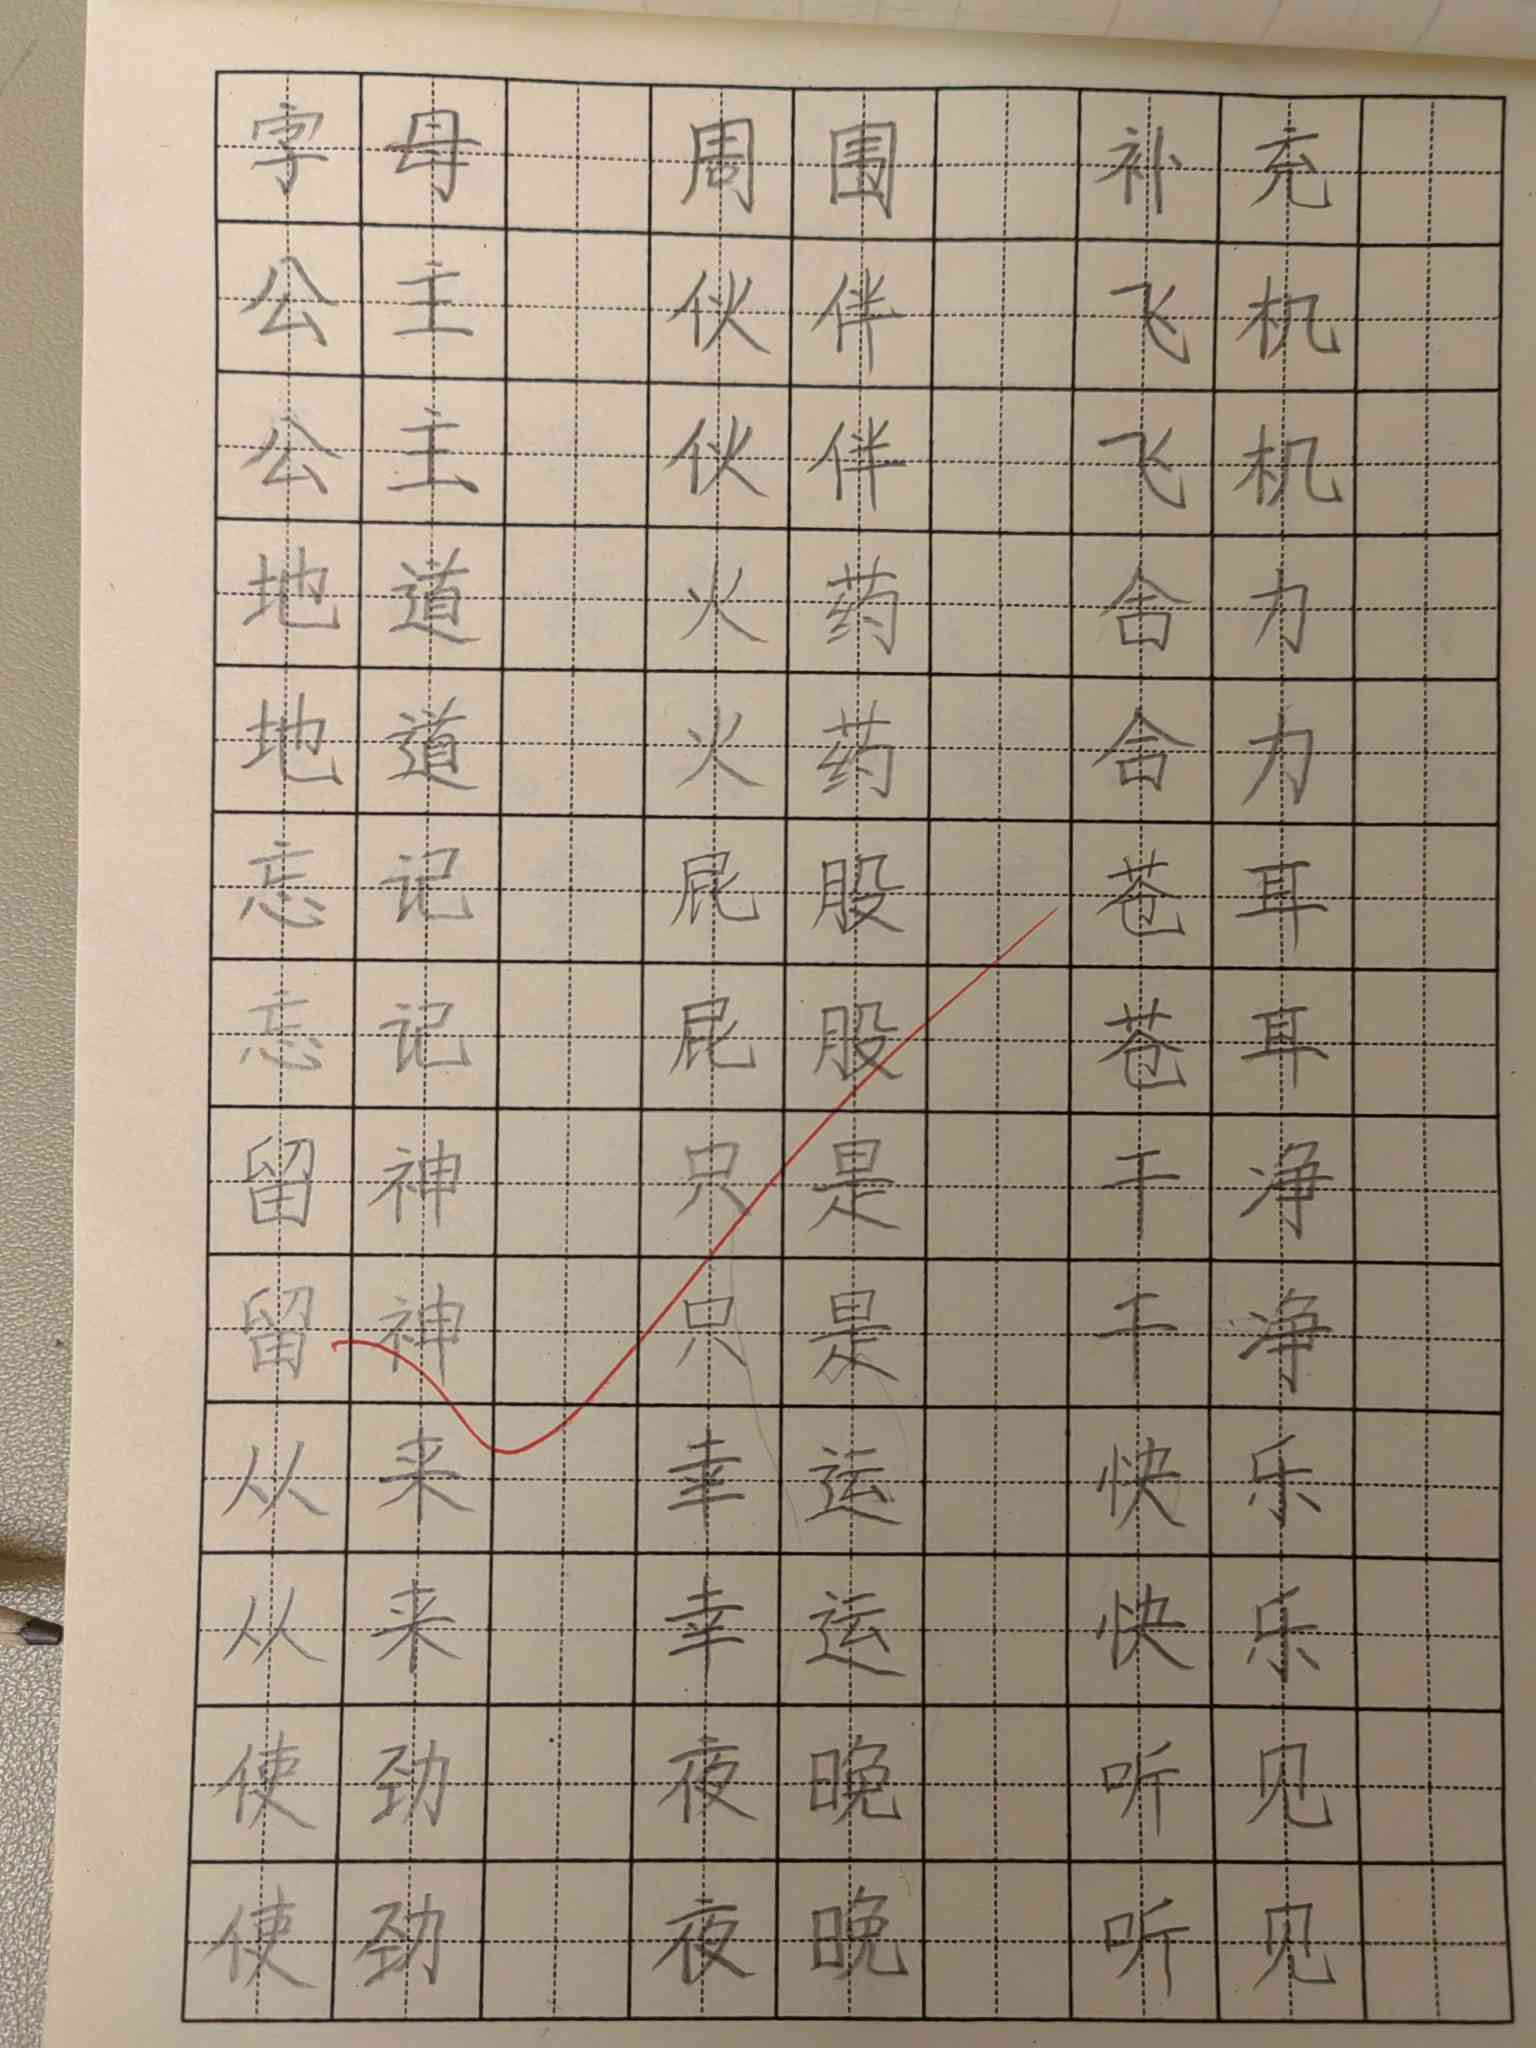 字母 周围 补充
公主 伙伴 飞机
公主 伙伴 飞机
地道 火药 舍力
地道 火药 舍力
忘记 屁股 苍耳
忘记 屁股 苍耳
留神 只是 干净
留神 只是 干净
从来 幸运 快乐
从来 幸运 快乐
使劲 夜晚 听见
使劲 夜晚 听见